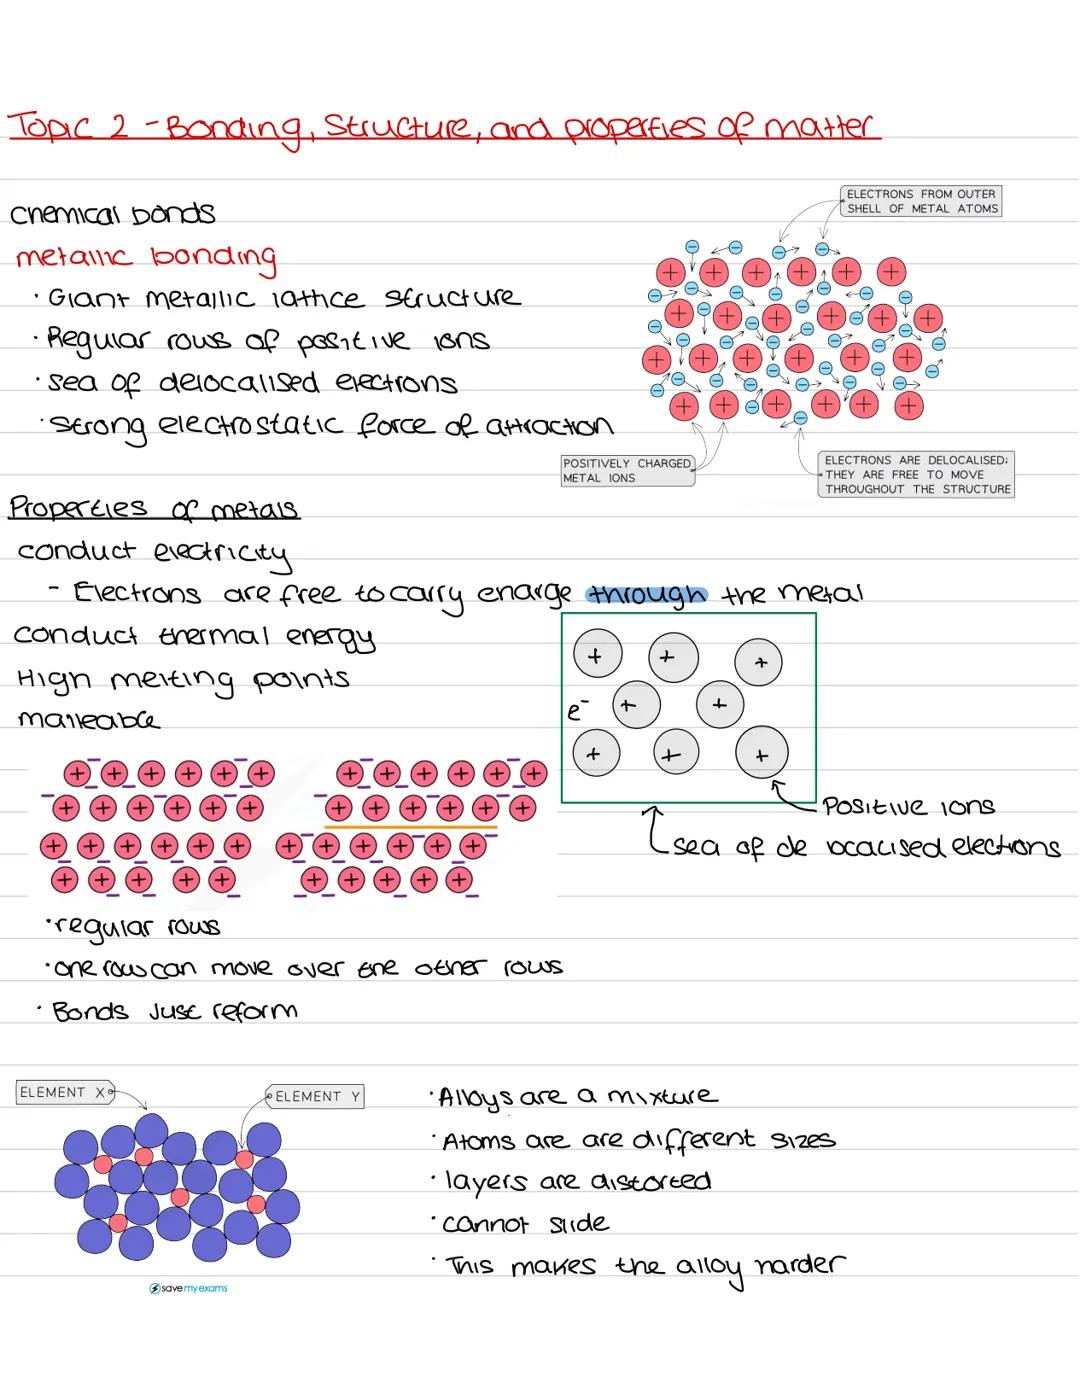 Topic 2 - Bonding, Structure, and properties of matter
ELECTRONS FROM OUTER
SHELL OF METAL ATOMS
chemical bonds
metallic bonding
· Giant metallic lattice structure
· Regular rows of positive ions
· sea of delocalised electrons
· strong electrostatic force of attraction
POSITIVELY CHARGED
METAL IONS
ELECTRONS ARE DELOCALISED;
THEY ARE FREE TO MOVE
THROUGHOUT THE STRUCTURE
Properties of metals
conduct electricity
- Electrons are free to carry charge through the metal
conduct thermal energy
High melting points
malleable
e⁻
Positive ions
sea of de localised electrons
· regular rows
· one row can move over the other rows
· Bonds Just reform
ELEMENT X
ELEMENT Y
· Alloys are a mixture
· Atoms are are different sizes
· layers are distorted
· cannot slide
· This makes the alloy harder
savemyexams